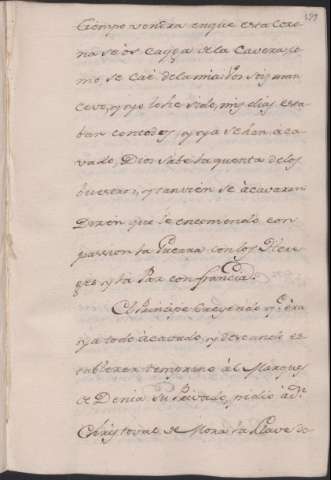 tiempo vendra enque esa coro
na se os cayga de la Cavera, co
mo, se cae de la mia. Vos sois man
cevo, y yo lo he sido, mis dias esta
ban contados, y ya se han aca
vado, Dios sabe la quenta de los
vuestros, y tanvien se acavaran
Dizen que le encomendo con
passion la Guerra con los Here
ges y la Paz con francia.
El Principe creyendo q.e era
ya todo acavado, y deseando es
tablezer temprano al Marques
de Denia su Privado, pidio a D.n
Christoval de Mora la llave de